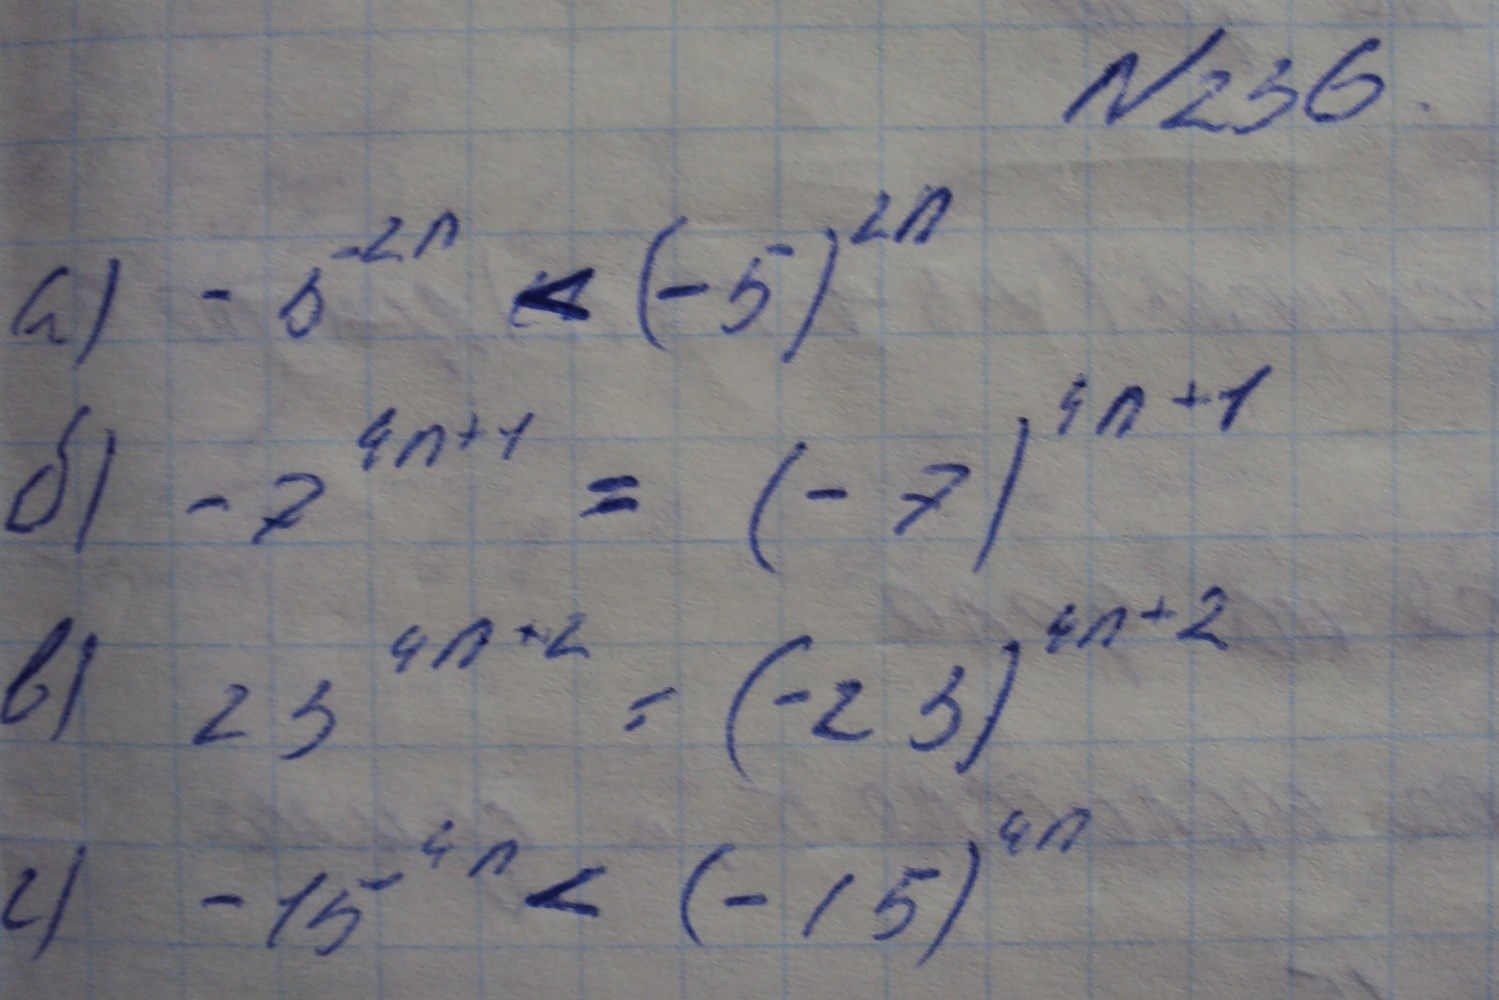 N236.
а) -5^2n < (-5)^2n
б) -7^4n+1 = (-7)^4n+1
в) 23^4n+2 = (-23)^4n+2
г) -15^4n < (-15)^4n